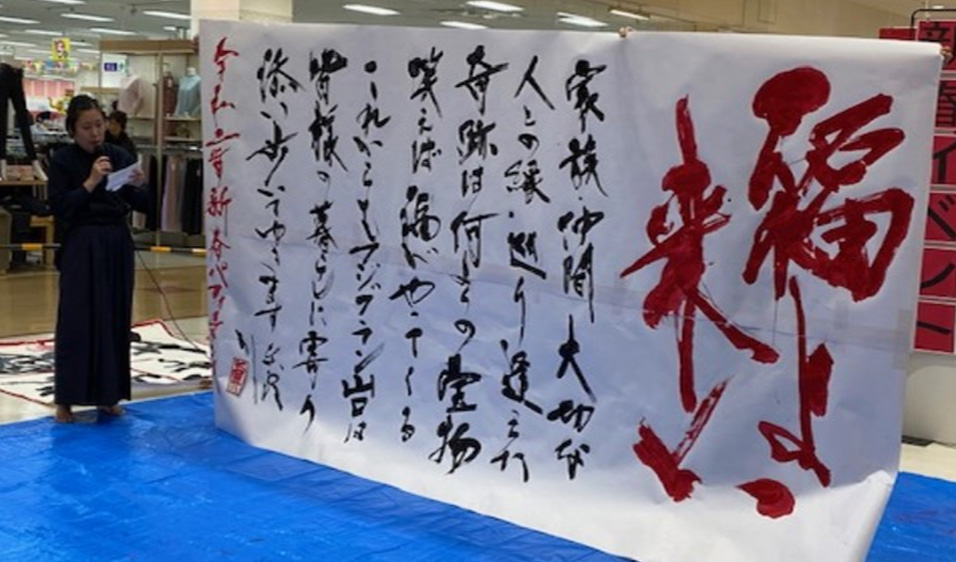 新春イベント
福よ
来い
家族・仲間 大切な
人との縁 巡り逢えた
奇跡は何よりの宝物
笑えば福がやってくる
これからもフジグラン山口は
皆様の暮らしに寄り
添い歩いてゆきます
令和 年 新春